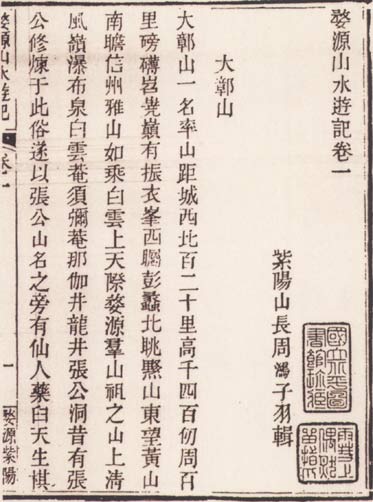 婺源山水遊記卷一
紫陽山長周鴻子羽輯
大鄣山
大鄣山一名率山距城西北百二十里高千四百仞周百
里磅礴岧嶤巔有振衣峯西䦨彭蠡北眺黟山東望黃山
南瞻信州雅山如乘白雲上天際婺源羣山祖之山上清
風嶺瀑布泉白雲菴須彌菴那伽井龍井張公洞昔有張
公修煉于此俗遂以張公山名之旁有仙人藥臼天生棋
婺源山水遊記
卷一
一
婺源紫陽